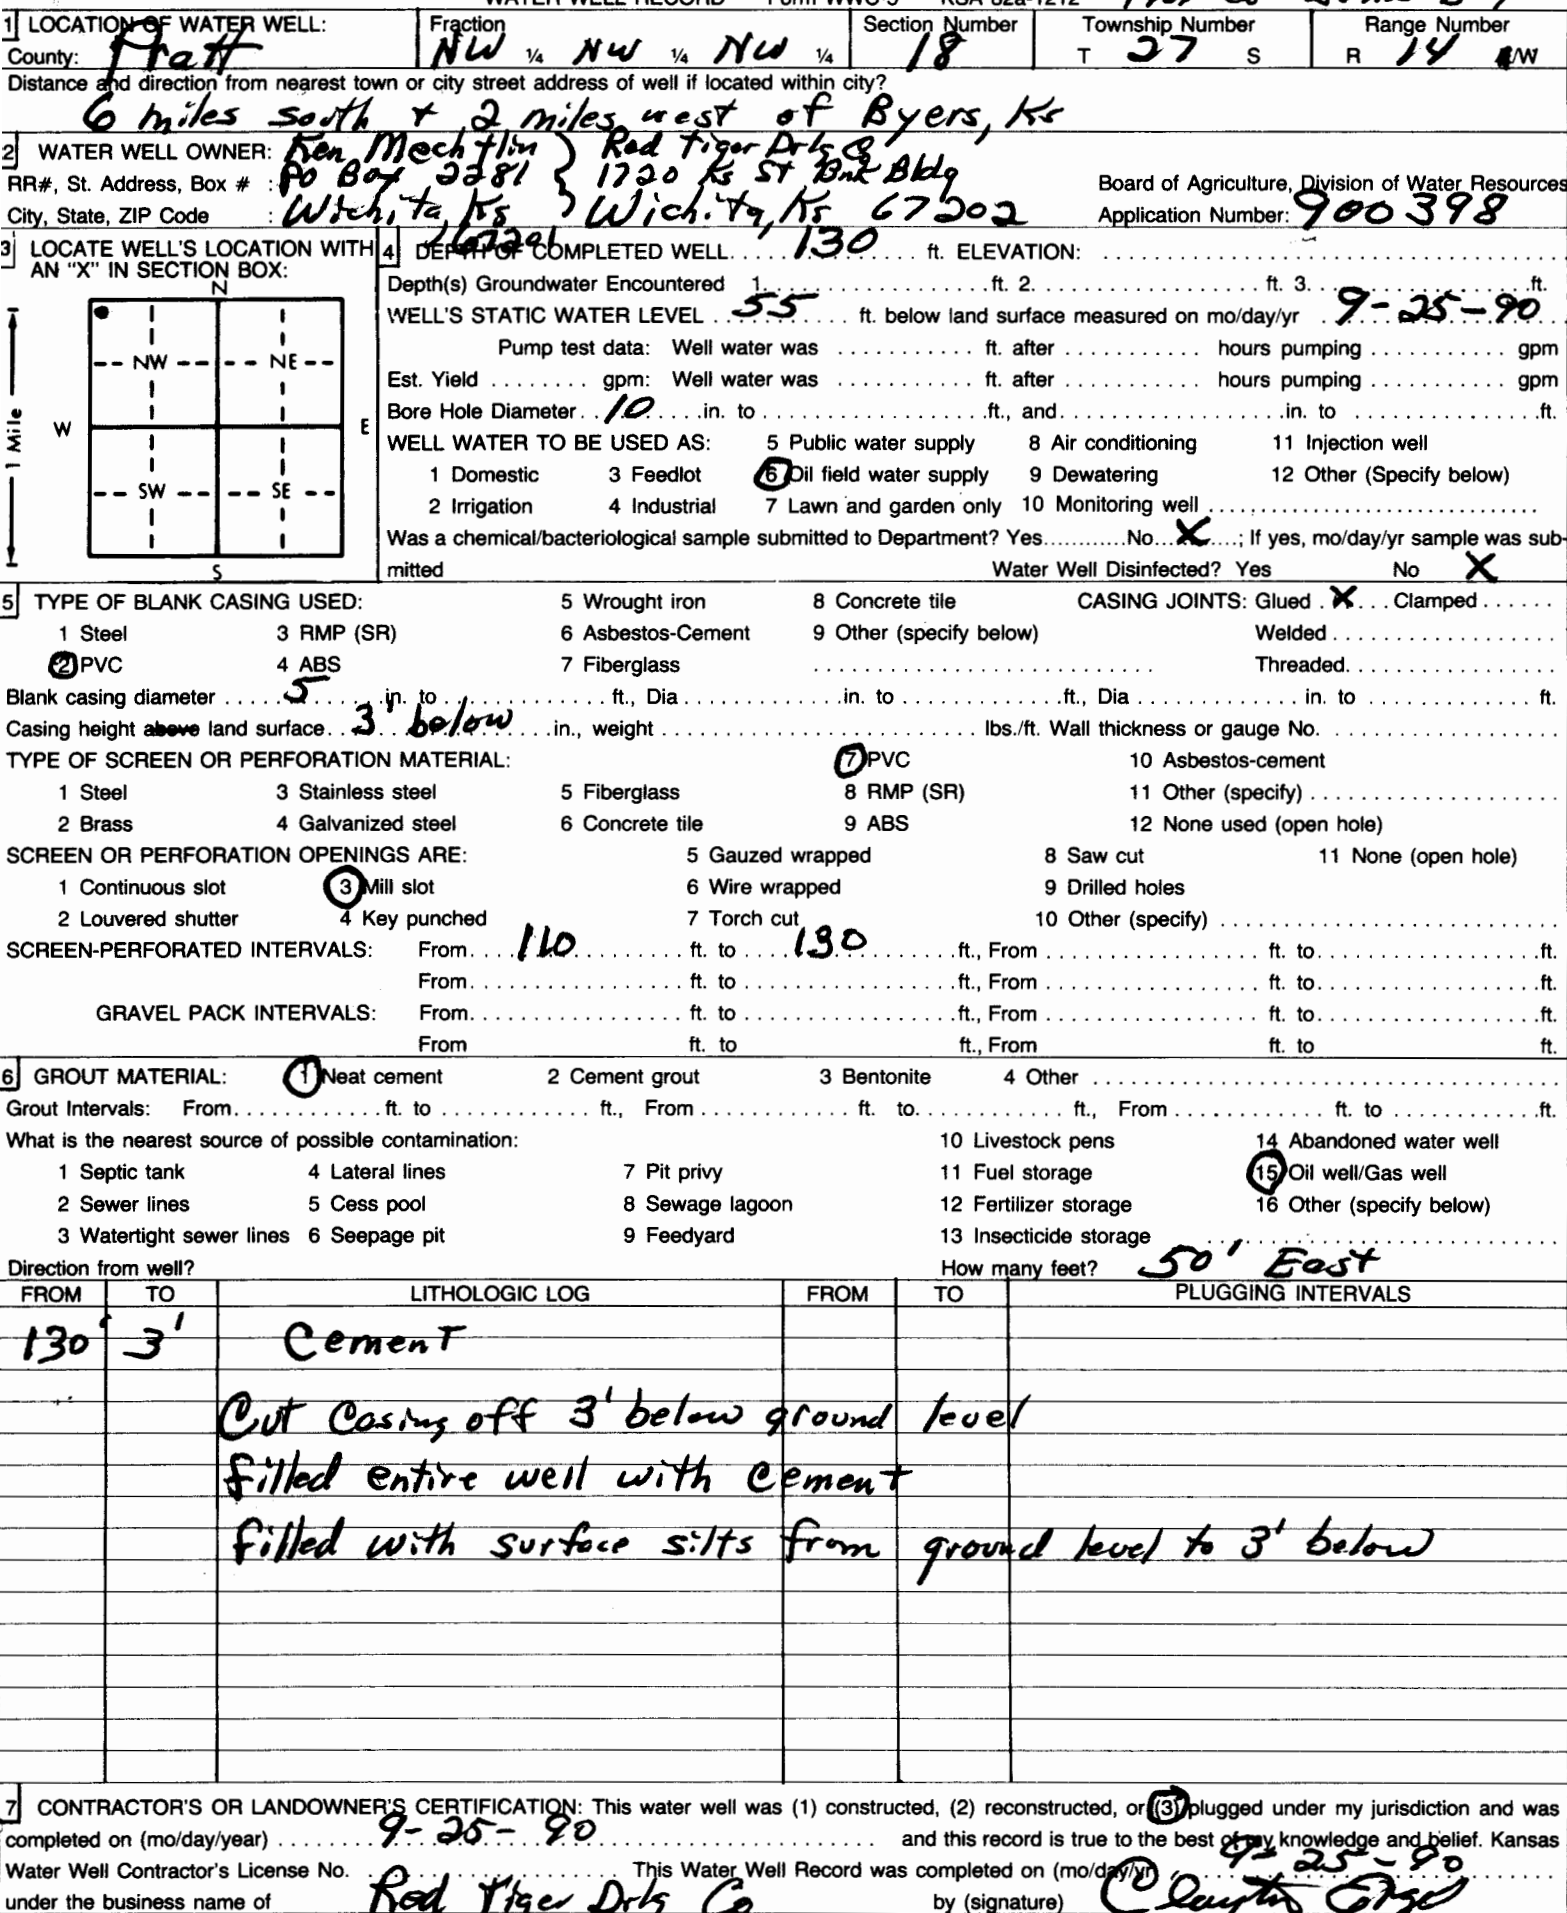 WATER WELL RECORD Form WWC-5 KSA 82a-1212
1 LOCATION OF WATER WELL: Fraction Section Number Township Number Range Number
County: Pratt NW ¼ NW ¼ NW ¼ 18 T 27 S R 14 E/W
Distance and direction from nearest town or city street address of well if located within city?
6 miles south + 2 miles west of Byers, Ks
2 WATER WELL OWNER: Ken Mechtlin } Red Tiger Drlg Co
RR#, St. Address, Box # : PO Box 2281 } 1720 Ks St Bnk Bldg Board of Agriculture, Division of Water Resources
City, State, ZIP Code : Wichita, Ks } Wichita, Ks 67202 Application Number: 900398
67201
3 LOCATE WELL'S LOCATION WITH AN "X" IN SECTION BOX:
N
NW NE
W E
SW SE
S
1 Mile
4 DEPTH OF COMPLETED WELL 130 ft. ELEVATION:
Depth(s) Groundwater Encountered 1. ft. 2. ft. 3. ft.
WELL'S STATIC WATER LEVEL 55 ft. below land surface measured on mo/day/yr 9-25-90
Pump test data: Well water was ft. after hours pumping gpm
Est. Yield gpm: Well water was ft. after hours pumping gpm
Bore Hole Diameter 10 in. to ft., and in. to ft.
WELL WATER TO BE USED AS: 5 Public water supply 8 Air conditioning 11 Injection well
1 Domestic 3 Feedlot 6 Oil field water supply 9 Dewatering 12 Other (Specify below)
2 Irrigation 4 Industrial 7 Lawn and garden only 10 Monitoring well
Was a chemical/bacteriological sample submitted to Department? Yes No X ; If yes, mo/day/yr sample was sub-
mitted Water Well Disinfected? Yes No X
5 TYPE OF BLANK CASING USED: 5 Wrought iron 8 Concrete tile CASING JOINTS: Glued X Clamped
1 Steel 3 RMP (SR) 6 Asbestos-Cement 9 Other (specify below) Welded
2 PVC 4 ABS 7 Fiberglass Threaded
Blank casing diameter 5 in. to ft., Dia in. to ft., Dia in. to ft.
Casing height above land surface 3' below in., weight lbs./ft. Wall thickness or gauge No.
TYPE OF SCREEN OR PERFORATION MATERIAL: 7 PVC 10 Asbestos-cement
1 Steel 3 Stainless steel 5 Fiberglass 8 RMP (SR) 11 Other (specify)
2 Brass 4 Galvanized steel 6 Concrete tile 9 ABS 12 None used (open hole)
SCREEN OR PERFORATION OPENINGS ARE: 5 Gauzed wrapped 8 Saw cut 11 None (open hole)
1 Continuous slot 3 Mill slot 6 Wire wrapped 9 Drilled holes
2 Louvered shutter 4 Key punched 7 Torch cut 10 Other (specify)
SCREEN-PERFORATED INTERVALS: From 110 ft. to 130 ft., From ft. to ft.
From ft. to ft., From ft. to ft.
GRAVEL PACK INTERVALS: From ft. to ft., From ft. to ft.
From ft. to ft., From ft. to ft.
6 GROUT MATERIAL: 1 Neat cement 2 Cement grout 3 Bentonite 4 Other
Grout Intervals: From ft. to ft., From ft. to ft., From ft. to ft.
What is the nearest source of possible contamination: 10 Livestock pens 14 Abandoned water well
1 Septic tank 4 Lateral lines 7 Pit privy 11 Fuel storage 15 Oil well/Gas well
2 Sewer lines 5 Cess pool 8 Sewage lagoon 12 Fertilizer storage 16 Other (specify below)
3 Watertight sewer lines 6 Seepage pit 9 Feedyard 13 Insecticide storage
Direction from well? How many feet? 50' East
FROM TO LITHOLOGIC LOG FROM TO PLUGGING INTERVALS
130' 3' Cement
Cut Casing off 3' below ground level
filled entire well with Cement
filled with surface silts from ground level to 3' below
7 CONTRACTOR'S OR LANDOWNER'S CERTIFICATION: This water well was (1) constructed, (2) reconstructed, or (3) plugged under my jurisdiction and was
completed on (mo/day/year) 9-25-90 and this record is true to the best of my knowledge and belief. Kansas
Water Well Contractor's License No. This Water Well Record was completed on (mo/day/yr) 9-25-90
under the business name of Red Tiger Drlg Co by (signature) Clayton